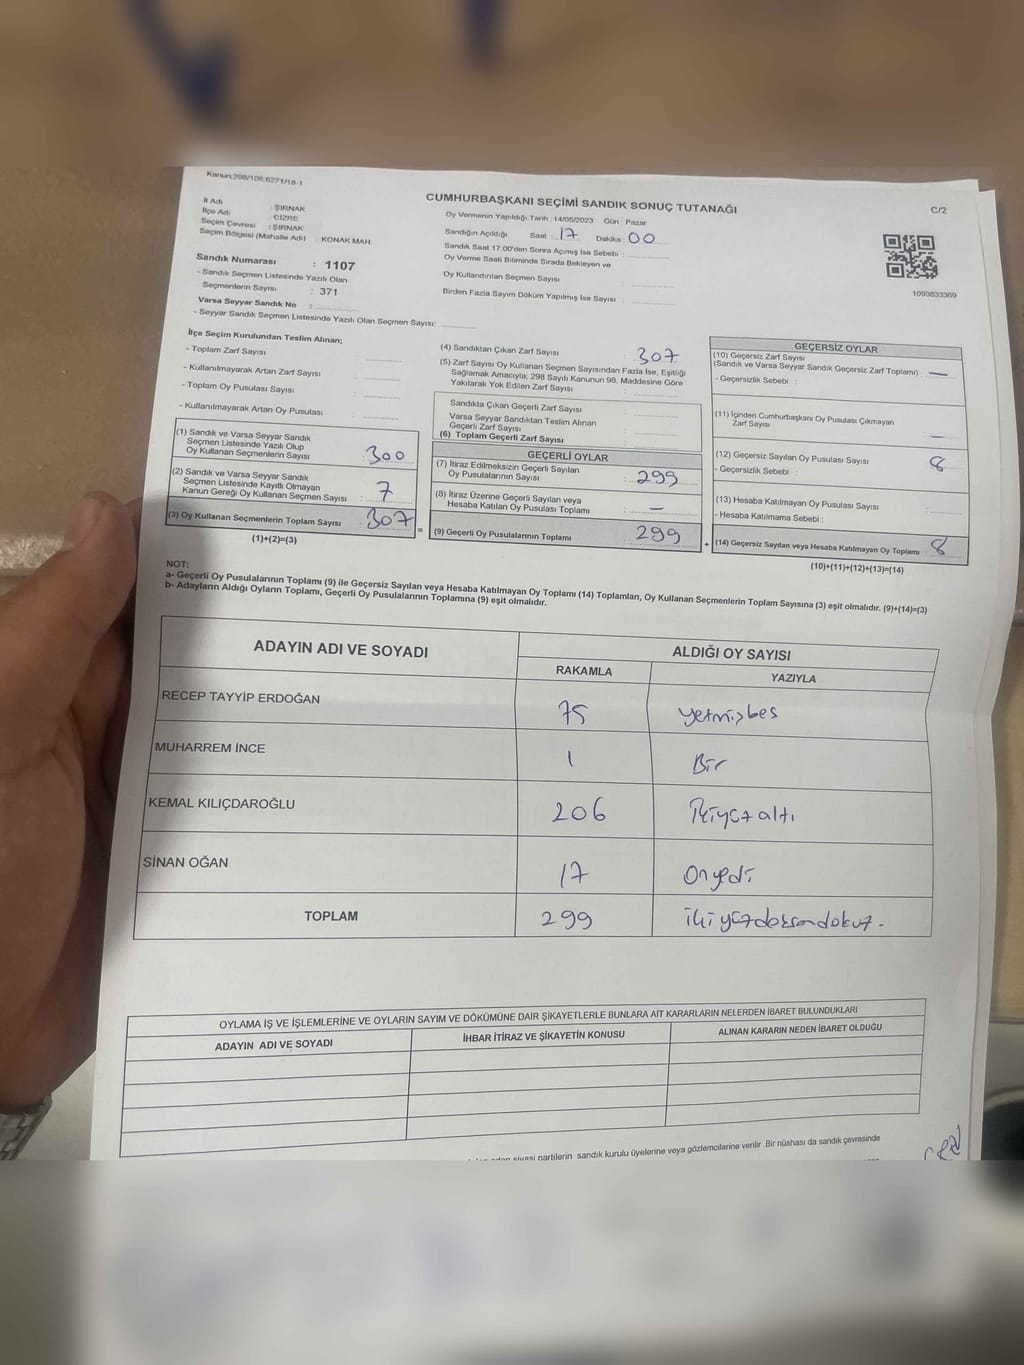 Kanun:298/105;6271/18-1
CUMHURBAŞKANI SEÇİMİ SANDIK SONUÇ TUTANAĞI
C/2
İl Adı : ŞIRNAK
İlçe Adı : CİZRE
Seçim Çevresi : ŞIRNAK
Seçim Bölgesi (Mahalle Adı) : KONAK MAH.
Sandık Numarası : 1107
- Sandık Seçmen Listesinde Yazılı Olan
Seçmenlerin Sayısı : 371
Varsa Seyyar Sandık No :
- Seyyar Sandık Seçmen Listesinde Yazılı Olan Seçmen Sayısı:
Oy Vermenin Yapıldığı Tarih : 14/05/2023 Gün : Pazar
Sandığın Açıldığı Saat : 17 Dakika : 00
Sandık Saat 17:00'den Sonra Açımış İse Sebebi :
Oy Verme Saati Bitiminde Sırada Bekleyen ve
Oy Kullandırılan Seçmen Sayısı :
Birden Fazla Sayım Döküm Yapılmış İse Sayısı :
1093833369
İlçe Seçim Kurulundan Teslim Alınan;
- Toplam Zarf Sayısı :
- Kullanılmayarak Artan Zarf Sayısı :
- Toplam Oy Pusulası Sayısı :
- Kullanılmayarak Artan Oy Pusulası :
(1) Sandık ve Varsa Seyyar Sandık
Seçmen Listesinde Yazılı Olup
Oy Kullanan Seçmenlerin Sayısı : 300
(2) Sandık ve Varsa Seyyar Sandık
Seçmen Listesinde Kayıtlı Olmayan
Kanun Gereği Oy Kullanan Seçmen Sayısı : 7
(3) Oy Kullanan Seçmenlerin Toplam Sayısı : 307
(1)+(2)=(3)
(4) Sandıktan Çıkan Zarf Sayısı : 307
(5) Zarf Sayısı Oy Kullanan Seçmen Sayısından Fazla İse, Eşitliği
Sağlamak Amacıyla, 298 Sayılı Kanunun 98. Maddesine Göre
Yakılarak Yok Edilen Zarf Sayısı :
Sandıkta Çıkan Geçerli Zarf Sayısı :
Varsa Seyyar Sandıktan Teslim Alınan
Geçerli Zarf Sayısı :
(6) Toplam Geçerli Zarf Sayısı :
GEÇERLİ OYLAR
(7) İtiraz Edilmeksizin Geçerli Sayılan
Oy Pusulalarının Sayısı : 299
(8) İtiraz Üzerine Geçerli Sayılan veya
Hesaba Katılan Oy Pusulası Toplamı : —
(9) Geçerli Oy Pusulalarının Toplamı 299
=
+
GEÇERSİZ OYLAR
(10) Geçersiz Zarf Sayısı
(Sandık ve Varsa Seyyar Sandık Geçersiz Zarf Toplamı) : —
- Geçersizlik Sebebi :
(11) İçinden Cumhurbaşkanı Oy Pusulası Çıkmayan
Zarf Sayısı : —
(12) Geçersiz Sayılan Oy Pusulası Sayısı : 8
- Geçersizlik Sebebi :
(13) Hesaba Katılmayan Oy Pusulası Sayısı :
- Hesaba Katılmama Sebebi :
(14) Geçersiz Sayılan veya Hesaba Katılmayan Oy Toplamı 8
(10)+(11)+(12)+(13)=(14)
NOT:
a- Geçerli Oy Pusulalarının Toplamı (9) ile Geçersiz Sayılan veya Hesaba Katılmayan Oy Toplamı (14) Toplamları, Oy Kullanan Seçmenlerin Toplam Sayısına (3) eşit olmalıdır. (9)+(14)=(3)
b- Adayların Aldığı Oyların Toplamı, Geçerli Oy Pusulalarının Toplamına (9) eşit olmalıdır.
ADAYIN ADI VE SOYADI ALDIĞI OY SAYISI
RAKAMLA YAZIYLA
RECEP TAYYİP ERDOĞAN 75 yetmişbeş
MUHARREM İNCE 1 Bir
KEMAL KILIÇDAROĞLU 206 İkiyüzaltı
SİNAN OĞAN 17 Onyedi
TOPLAM 299 ikiyüzdoksandokuz.
OYLAMA İŞ VE İŞLEMLERİNE VE OYLARIN SAYIM VE DÖKÜMÜNE DAİR ŞİKAYETLERLE BUNLARA AİT KARARLARIN NELERDEN İBARET BULUNDUKLARI
ADAYIN ADI VE SOYADI İHBAR İTİRAZ VE ŞİKAYETİN KONUSU ALINAN KARARIN NEDEN İBARET OLDUĞU
siyasi partilerin sandık kurulu üyelerine veya gözlemcilerine verilir .Bir nüshası da sandık çevresinde